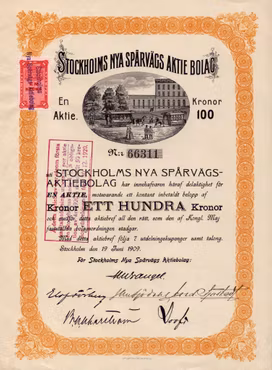 STOCKHOLMS NYA SPÅRVÄGS AKTIE BOLAG
En Aktie.
Kronor 100
Nr: 66311
STOCKHOLMS NYA SPÅRVÄGS-
AKTIEBOLAG har innehafvaren häraf delaktighet för
EN AKTIE, motsvarande ett kontant inbetaldt belopp af
Kronor ETT HUNDRA Kronor
och medför detta aktiebref all den rätt, som den af Kongl. Maj
fastställda bolagsordningen medger.
Med detta aktiebref följa 7 utdelningskuponger samt talong.
Stockholm de 19 Juni 1909.
För Stockholms Nya Spårvägs Aktiebolag: